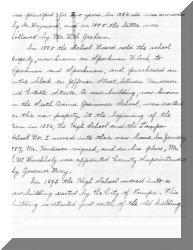 was principal for two years. In 1884 he was succeeded
by Mr. Haymond, and in 1885 the latter was
followed by Mr. W. W. Graham.
In 1885 the School Board sold the school
property, now known as Spackman Block, to
Spackman and Spackman, and purchased an
entire block on Jefferson Street, between
and Estelle Streets. A new building, now known
as the South Avenue Grammar School, was erected
on this new property. At the beginning of the
term in 1886, the High School and the Tampa
School No. 1 moved into their new home. In January
1887, Mr. Anderson resigned, and in his place, Mr.
L. W. Buchholz was appointed County Superintendent
by Governor Perry.
In 1893 the High School moved into a
new building erected by the City of Tampa. This
building is situated just north of the old building